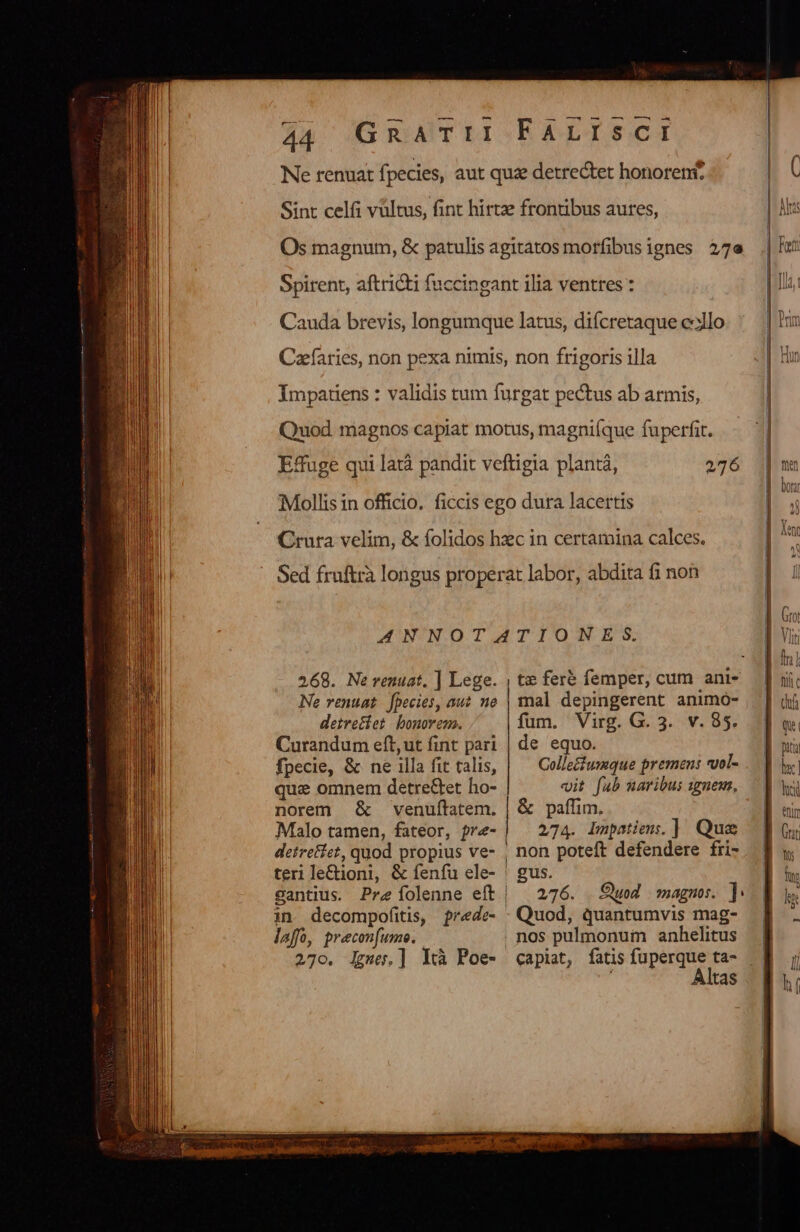 44 GRATII FALISCI
Ne renuat ſpecies, aut quæ detrectet honorem:
Sint celſi vultus, ſint hirtæ frontibus aures,
Os magnum, & patulis agitatos morſibus ignes 270
Spirent, aſtricti ſuccingant ilia ventres :
Cauda brevis, longumque latus, diſcretaque collo
Cæſaries, non pexa nimis, non frigoris illa
Impatiens : validis tum ſurgat pectus ab armis,
Quod magnos capiat motus, magniſque ſuperſit.
Effuge qui latâ pandit veſtigia plantâ, 276
Mollis in officio. ſiccis ego dura lacertis
Crura velim, & ſolidos hæc in certamina calces.
Sed fruſtrà longus properat labor, abdita ſi non
ANNOTATIONES.
268. Ne renuat. ] Lege.
Ne renuat ſpecies, aut ne
detrectet honorem.
Curandum eſt, ut ſint pari
ſpecie, & ne illa ſit talis,
quæ omnem detrectet ho-
norem & venuſtatem.
Malo tamen, fateor, præ-
detrectet, quod propius ve-
teri lectioni, & ſenſu ele-
gantius. Præ ſolenne eſt
in decompoſitis, præde-
laſſo, præconſumo.
270. Ignes. ] Ità Poe-
tæ ferè ſemper, cum ani-
mal depingerent animo-
ſum. Virg. G. 3. v. 85.
de equo.
Collectumque premens vol-
vit ſub naribus ignem,
& paſſim.
274. Impatiens. ] Quæ
non poteſt defendere fri-
gus.
276. Quod magnos. ]
Quod, quantumvis mag-
nos pulmonum anhelitus
capiat, ſatis ſuperque ta-
Altas